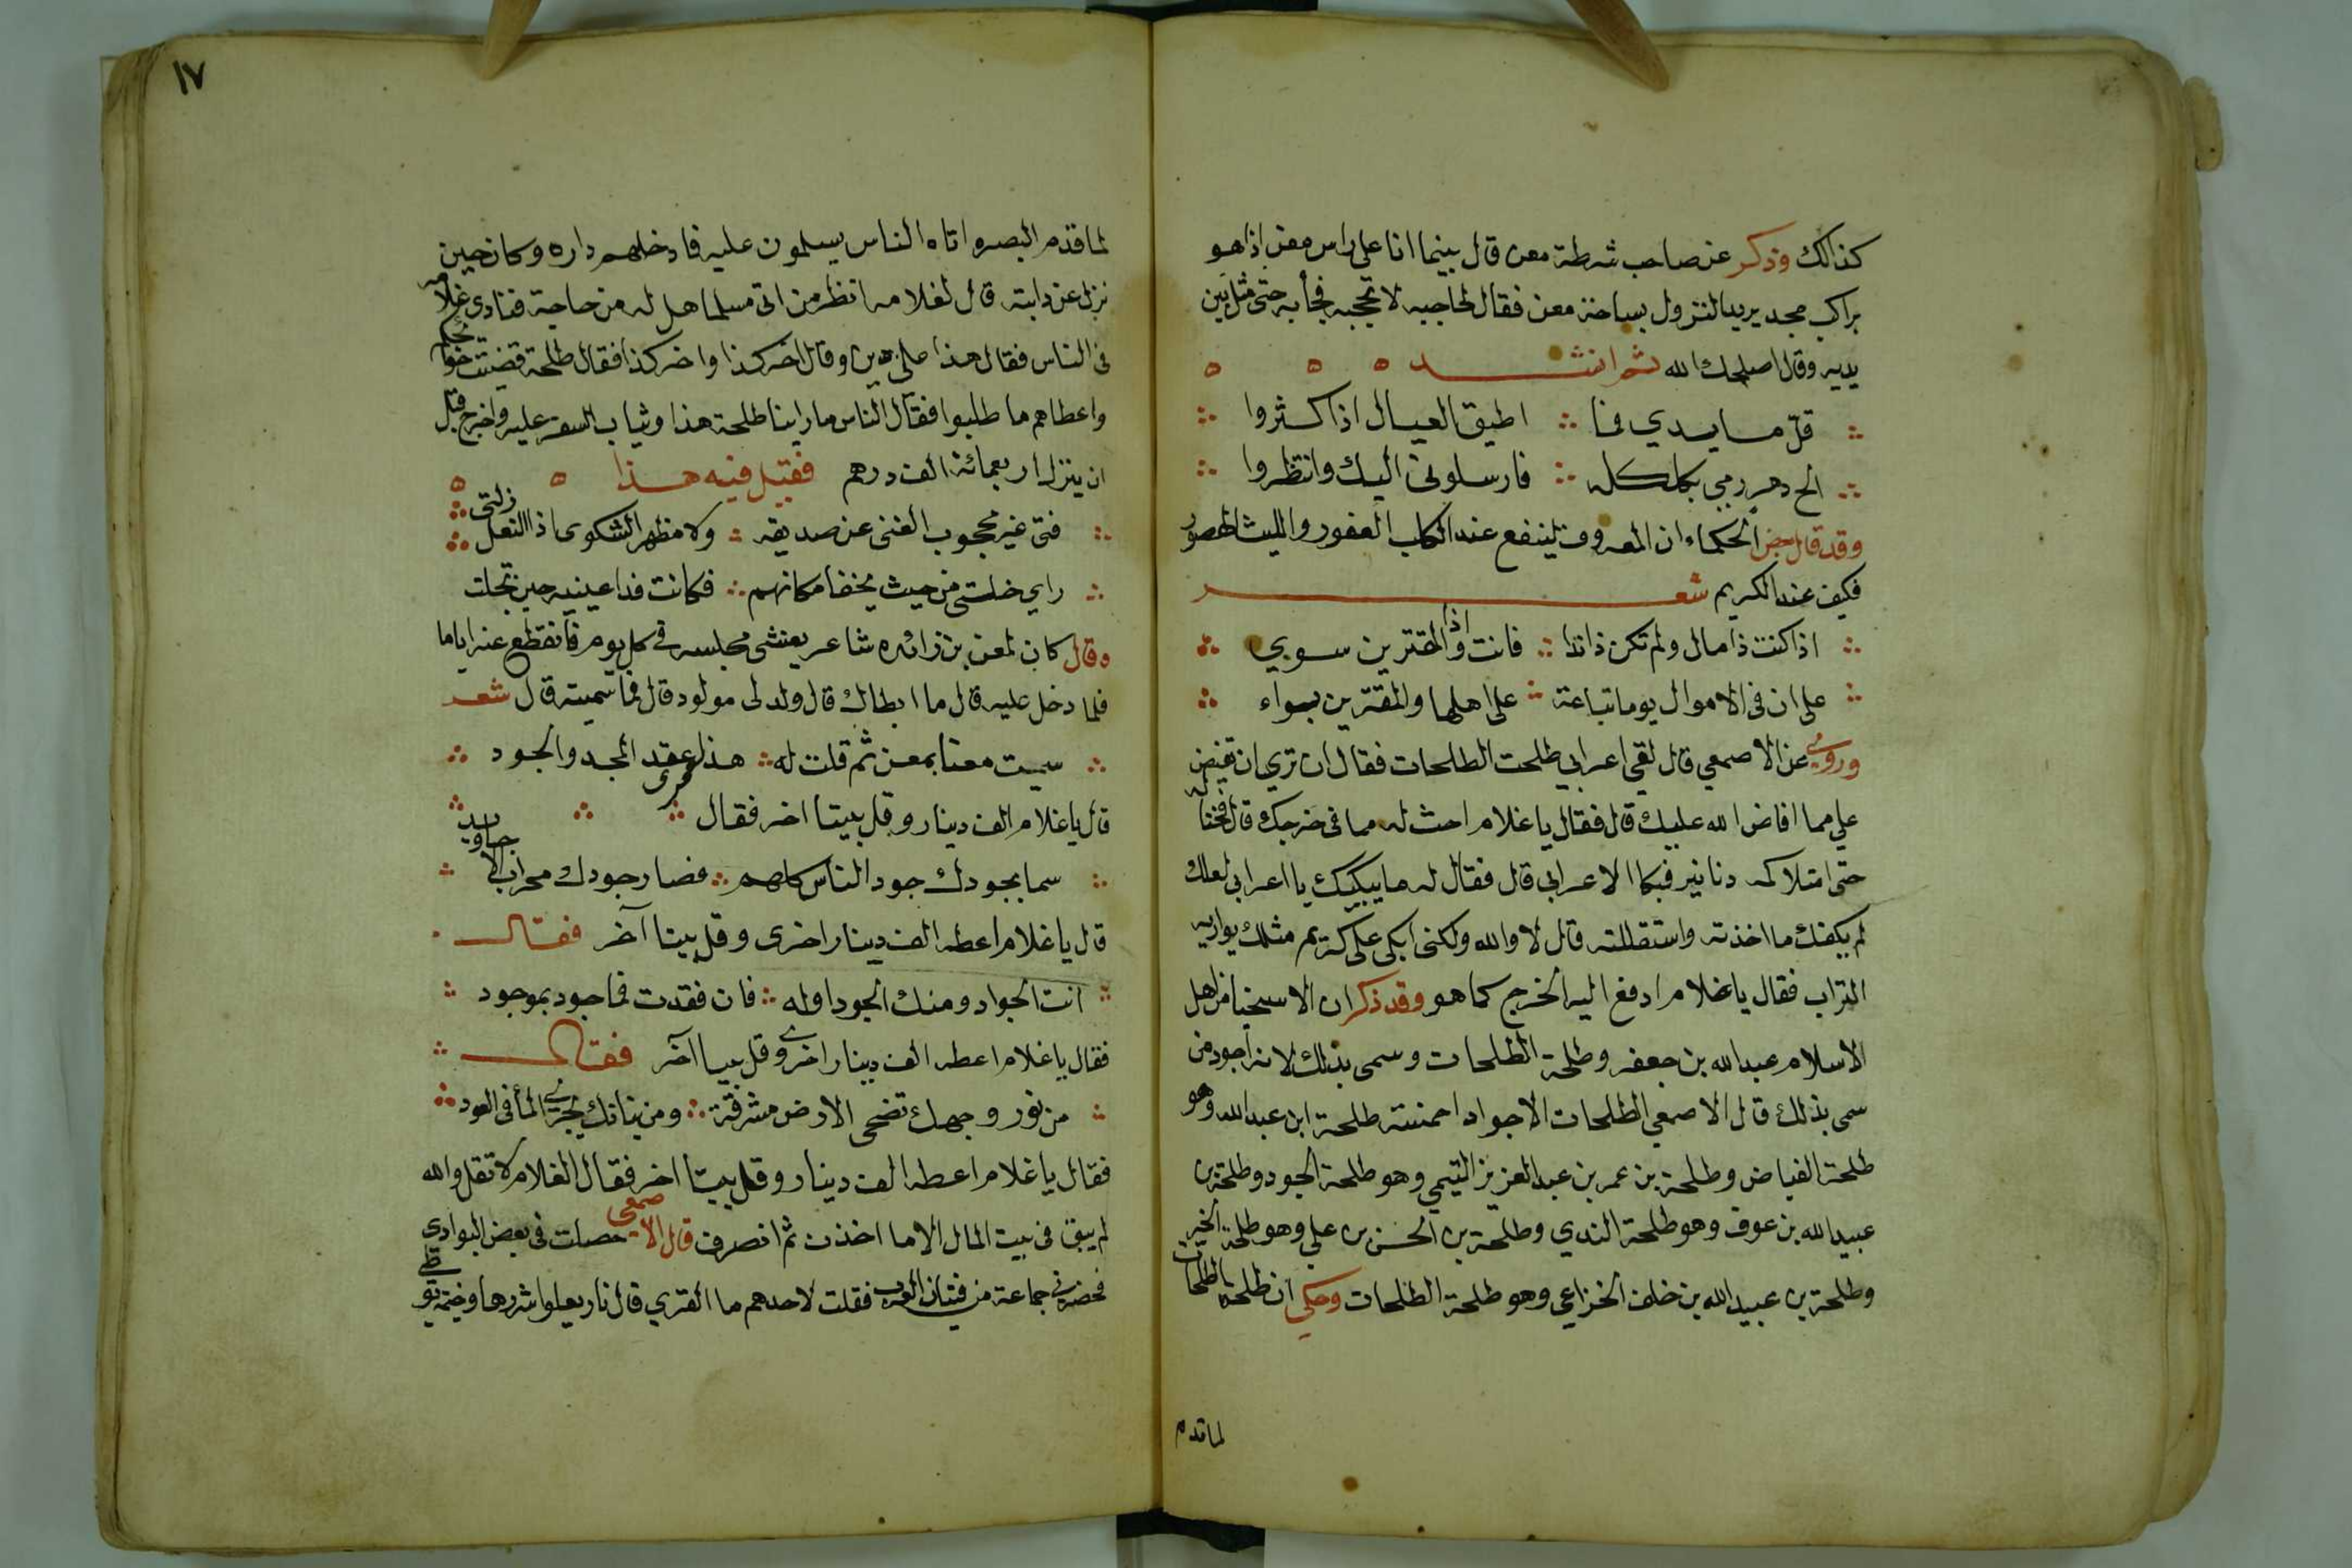 كذالك وذكر عن صاحب شرطة معن قال بينما انا على راس معن اذا هو
براكب مجد يريد النزول بساحة معن فقال لحاجبه لا تحجبه فجأ به حتى مثل بين
يديه وقال اصلحك الله ثم انشد
قلّ ما بيدي فما اطيق العيال اذا كثروا
الح دهر رمي بكلكله فارسلونى اليك وانتظروا
وقد قال بعض الحكماء ان المعروف لينفع عند الكلب العقور والليث الهصور
فكيف عند الكريم شعر
اذا كنت ذا مال ولم تكن ذا ندا فانت اذا والمقترين سوي
على ان فى الاموال يوما تباعة على اهلها والمقترين بواء
وروي عن الاصمعي قال لقى اعرابي طلحت الطلحات فقال ان تري ان تفيض
علي مما افاض الله عليك قال فقال يا غلام احث له مما فى خرجك قال فحثا له
حتى امتلا كمه دنانير فبكا الاعرابي قال فقال له ما يبكيك يا اعرابي لعلك
لم يكفك ما اخذته واستقللته قال لا والله ولكنى ابكى على كريم مثلك يواريه
التراب فقال يا غلام ادفع اليه الخرج كما هو وقد ذكر ان الاسخيا من اهل
الاسلام عبد الله بن جعفر وطلحة الطلحات وسمى بذلك لانه اجود من
سمى بذلك قال الاصمعي الطلحات الاجواد احمسة طلحة ابن عبد الله وهو
طلحة الفياض وطلحة بن عمر بن عبد العزيز التيمي وهو طلحة الجود وطلحة بن
عبيد الله بن عوف وهو طلحة الندي وطلحة بن الحسن بن علي وهو طلحة الخير
وطلحة بن عبيد الله بن خلف الخزاعي وهو طلحة الطلحات وحكي ان طلحة الطلحات
لما قدم
١٧
لما قدم البصره اتاه الناس يسلمون عليه فادخلهم داره وكان حين
نزل عن دابته قال لغلامه انظر من اتى مسلما هل له من حاجة فنادى غلامه
فى الناس فقال هذا على دين وقال اخر كذا واخر كذا فقال طلحة قضيت حوائجكم
واعطاهم ما طلبوا فقال الناس ما راينا طلحة هذا وثياب السفر عليه واخرج قبل
ان ينزل اربعمائة الف درهم فقيل فيه هذا
فتى غير محجوب الغنى عن صديقه ولا مظهر الشكوى اذا النعل زلت
راي خلتى من حيث يخفا مكانهم فكانت قذا عينيه حين تجلت
وقال كان لمعن بن زائده شاعر يغشى مجلسه فى كل يوم فانقطع عنه اياما
فلما دخل عليه قال ما ابطاك قال ولد لى مولود قال فما سميته قال شعر
سميت معنا بمعن ثم قلت له هذا سمى عقد المجد والجود
قال يا غلام الف دينار وقل بيتا اخر فقال
سما بجودك جود الناس كلهم فصار جودك محراب الاجاويد
قال يا غلام اعطه الف دينار اخرى وقل بيتا آخر فقال
انت الجواد ومنك الجود اوله فان فقدت فما جود بموجود
فقال يا غلام اعطه الف دينار اخرى وقل بيتا آخر فقال
من نور وجهك تضحى الارض مشرقة ومن بنانك يجري المأ فى العود
فقال يا غلام اعطه الف دينار وقل بيتا اخر فقال الغلام لا تقل والله
لم يبق فى بيت المال الا ما اخذت ثم انصرف قال الاصمعي حصلت فى بعض البوادى
فحضرنى جماعة من فتيان العرب فقلت لاحدهم ما القري قال نار يعلوا شررها وخيمة